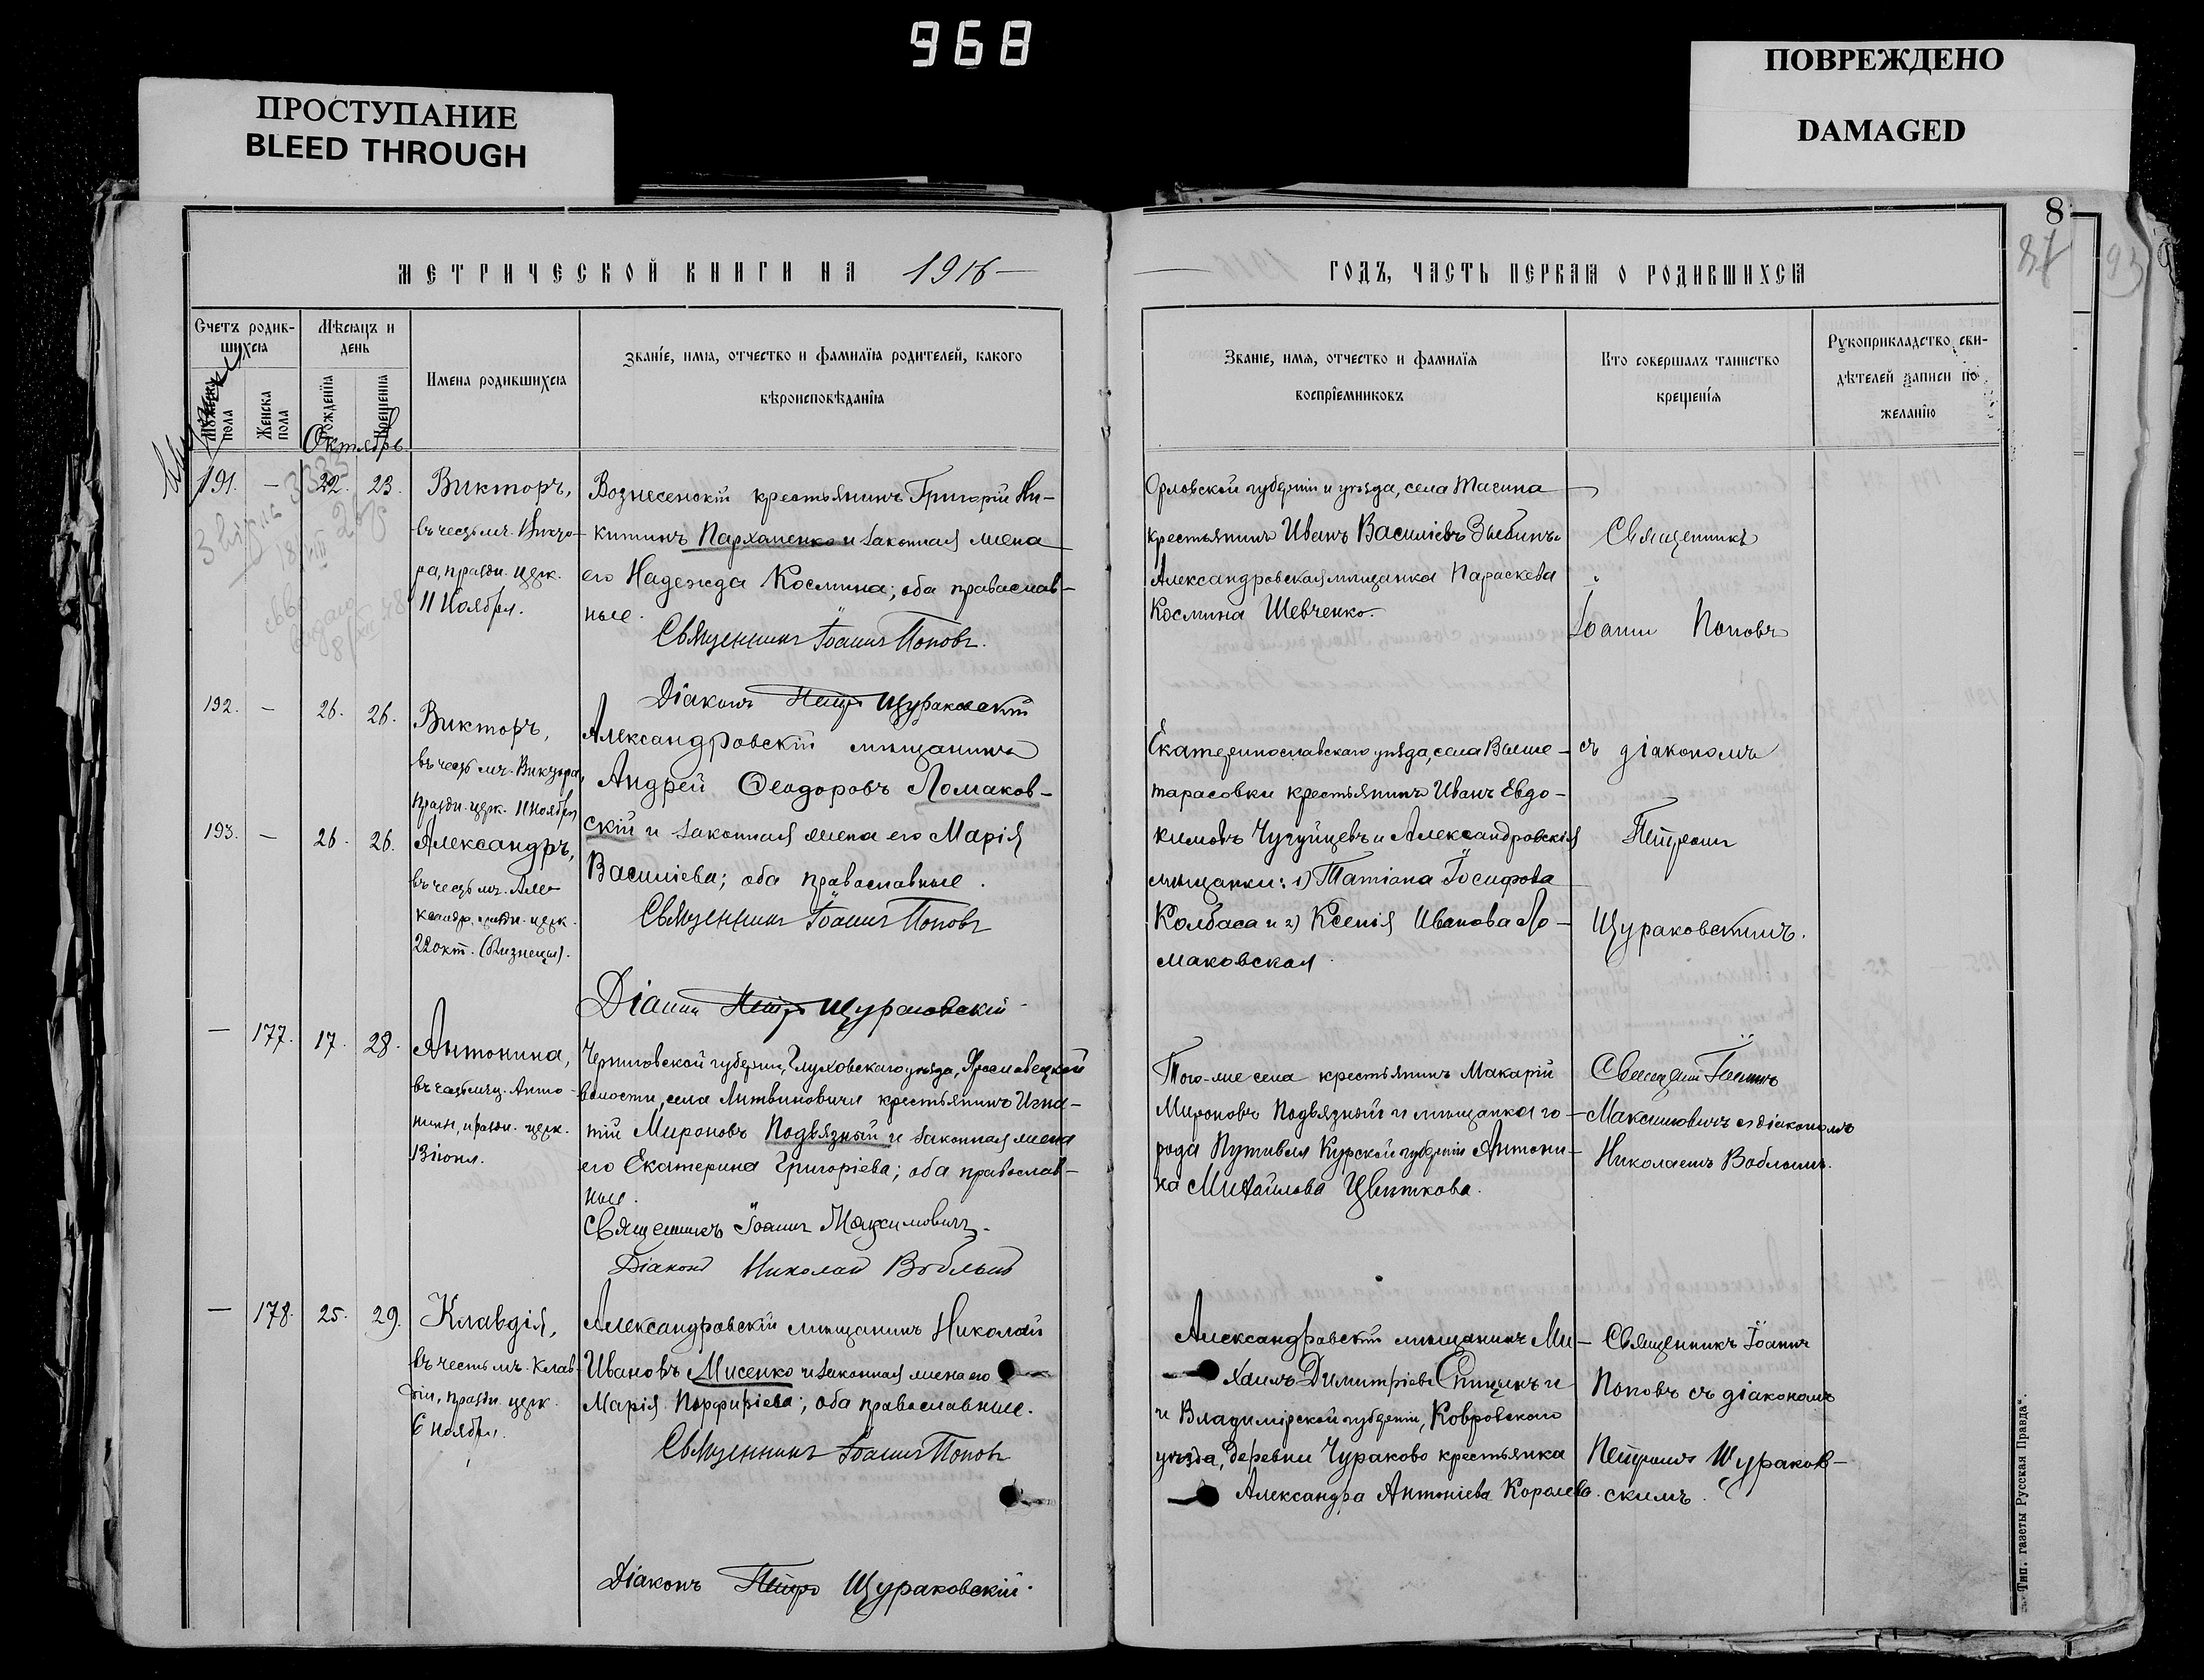 968
ПРОСТУПАНИЕ
BLEED THROUGH
ПОВРЕЖДЕНО
DAMAGED
МЕТРИЧЕСКОЙ КНИГИ НА 1916
Счетъ родив-
шихся
Мѣсяцъ и
день
Имена родившихся
Званіе, имя, отчество и фамилія родителей, какого
вѣроисповѣданія
Мужеска
пола
Женска
пола
Рожденія
Крещенія
Октябрь
191. — 22. 23.
Викторъ,
въ честь мч. Викто-
ра, праздн. церк.
11 Ноября.
Вознесенскій крестьянинъ Григорій Ни-
китинъ Пархоменко и законная жена
его Надежда Космина; оба православ-
ные.
Священникъ Іоаннъ Поповъ.
Діаконъ Петръ Щураковскій
192. — 26. 26.
Викторъ,
въ честь мч. Виктора,
праздн. церк. 11 Ноября
193. — 26. 26.
Александръ,
въ честь мч. Але-
ксандр. праздн. церк.
22 окт. (близнецы).
Александровскій мѣщанинъ
Андрей Ѳеодоровъ Ломаков-
скій и законная жена его Марія
Васильева; оба православные.
Священникъ Іоаннъ Поповъ
Петръ Щураковскій
— 177. 17. 28.
Антонина,
въ честь мц. Анто-
нины, праздн. церк.
13 іюня.
Черниговской губерніи, Глуховскаго уѣзда, Ярославецкой
волости, села Литвиновичи крестьянинъ Игна-
тій Мироновъ Подвязный и законная жена
его Екатерина Григоріева; оба православ-
ные.
Священникъ Іоаннъ Максимовичъ.
Діаконъ Николай Воблый
— 178. 25. 29.
Клавдія,
въ честь мч. Клав-
діи, праздн. церк.
6 ноября.
Александровскій мѣщанинъ Николай
Ивановъ Мисенко и законная жена его
Марія Порфиріева; оба православные.
Священникъ Іоаннъ Поповъ
Діаконъ Петръ Щураковскій.
8
87
93
1916
ГОДЪ, ЧАСТЬ ПЕРВАЯ О РОДИВШИХСЯ
Званіе, имя, отчество и фамилія
воспріемниковъ
Кто совершалъ таинство
крещенія
Рукоприкладство сви-
дѣтелей записи по
желанію
Орловской губерніи и уѣзда, села
крестьянинъ Иванъ Васильевъ Зыбинъ и
Александровская мѣщанка Параскева
Космина Шевченко.
Священникъ
Іоаннъ Поповъ
Екатеринославскаго уѣзда, села Выше-
тарасовки крестьянинъ Иванъ Евдо-
кимовъ Чугуйцевъ и Александровскія
мѣщанки: 1) Татіана Іосифова
Колбаса и 2) Ксенія Иванова Ло-
маковская.
съ діакономъ
Петромъ
Щураковскимъ.
Того-же села крестьянинъ Макарій
Мироновъ Подвязный и мѣщанка го-
рода Путивля Курской губерніи Антони-
на Михайлова Цвѣткова.
Іоаннъ
Максимовичъ съ діакономъ
Николаемъ Воблымъ.
Александровскій мѣщанинъ Ми-
хаилъ Димитріевъ Спицынъ и
и Владимірской губерніи, Ковровскаго
уѣзда, деревни Чураково крестьянка
Александра Антоніева Королева.
Священникъ Іоаннъ
Поповъ съ діакономъ
Петромъ Щураков-
скимъ.
Тип. газеты Русская Правда".